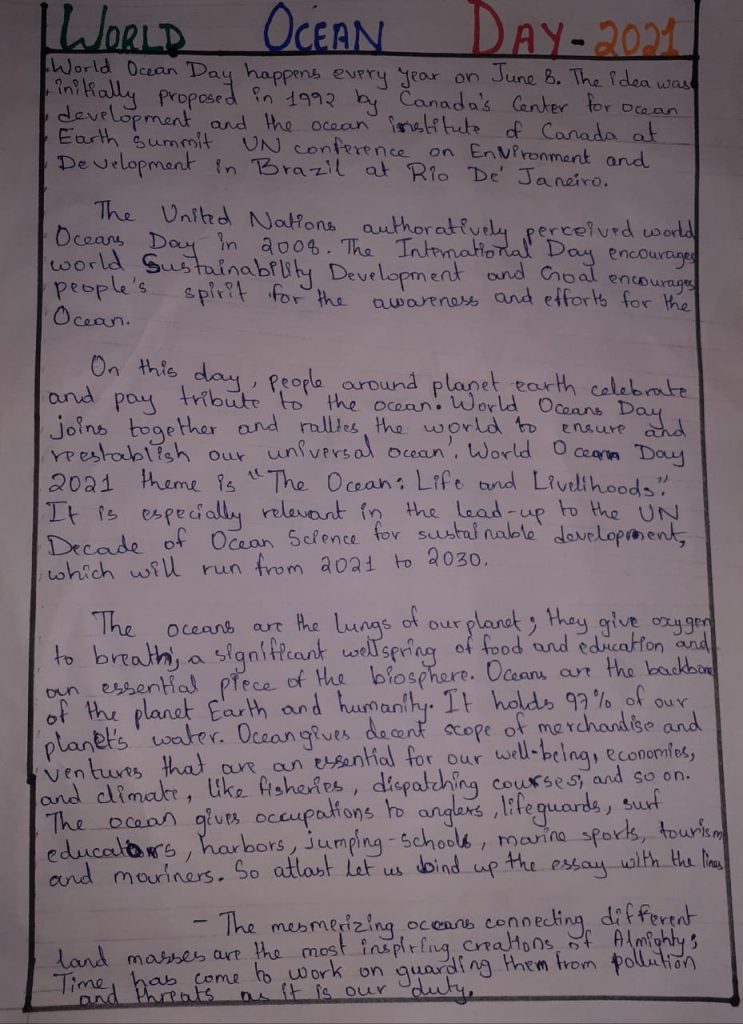 WORLD OCEAN DAY - 2021
World Ocean Day happens every year on June 8. The idea was
initially proposed in 1992 by Canada's Center for ocean
development and the ocean institute of Canada at
Earth summit UN conference on Environment and
Development in Brazil at Rio De' Janeiro.
The United Nations authoratively perceived world
Oceans Day in 2008. The International Day encourages
world Sustainability Development and Goal encourages
people's spirit for the awareness and efforts for the
Ocean.
On this day, people around planet earth celebrate
and pay tribute to the ocean. World Oceans Day
joins together and rallies the world to ensure and
reestablish our universal ocean'. World Ocean Day
2021 theme is "The Ocean: Life and Livelihoods".
It is especially relevant in the lead-up to the UN
Decade of Ocean Science for sustainable development,
which will run from 2021 to 2030.
The oceans are the lungs of our planet; they give oxygen
to breath, a significant wellspring of food and education and
an essential piece of the biosphere. Oceans are the backbone
of the planet Earth and humanity. It holds 97% of our
planet's water. Ocean gives decent scope of merchandise and
ventures that are an essential for our well-being, economies,
and climate, like fisheries, dispatching courses, and so on.
The ocean gives occupations to anglers, lifeguards, surf
educators, harbors, jumping-schools, marine sports, tourism
and mariners. So atlast let us bind up the essay with the lines
- The mesmerizing oceans connecting different
land masses are the most inspiring creations of Almighty;
Time has come to work on guarding them from pollution
and threats as it is our duty.